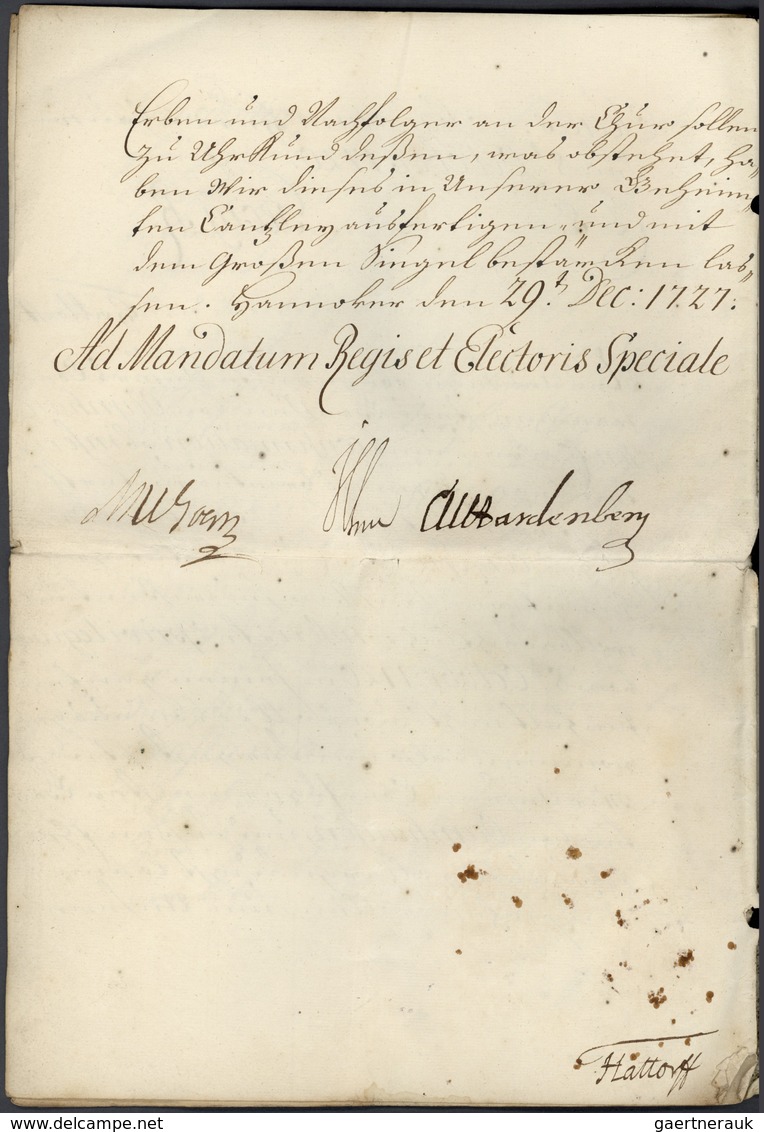 Erben und Nachfolger an der Chur sollen
zu Uhrkund deßen, was obstehet, ha„
ben Wir dieses in Unserer Geheim„
ten Cantzley ausfertigen, und mit
dem Großen Siegel bestärcken las„
sen. Hannover den 29.t Dec: 1727.
Ad Mandatum Regis et Electoris Speciale
CUHardenberg
Hattorff
DELCAMPE.NET
gaertnerauk